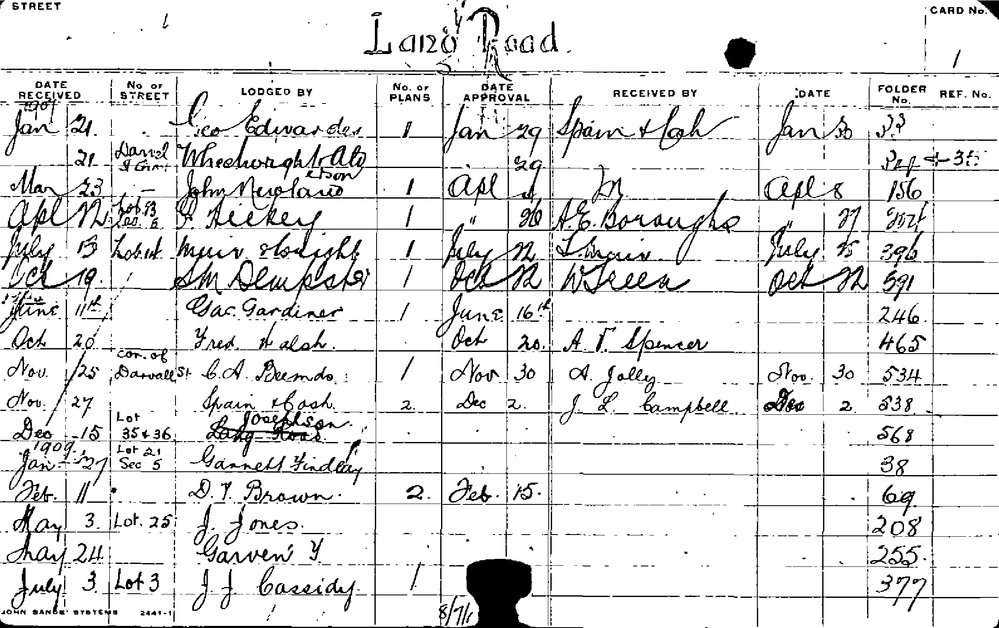 STREET
CARD No.
Lang Road.
1
DATE RECEIVED No. OF STREET LODGED BY No. OF PLANS DATE APPROVAL RECEIVED BY DATE FOLDER No. REF. No.
Jan 21. Geo Edwardes 1 Jan 29 Spain & Cosh Jan 30 33
21 Wheelwright & 29 35
Mar 23 — John 1 Apl 8 156
Apl 12 F. Hickey 1 " 26 A.E. Boroughs " 27
July 13 Muir & Knight 1 July 22 July 25 396
Oct 19. SM Dempster 1 Oct 22 W Green Oct 22 591
June 11th Gardiner 1 June 16th 246
Oct 20 Fred Walsh. Oct 20. A. T. Spencer 465
Nov. 25 con. of Darvall St C. A. 1 Nov 30 A Jolly Nov. 30 534
Nov. 27 Spain & Cosh 2. Dec 2. J. L. Campbell Dec 2. 538
Dec 15 Lot 35 & 36 Josephson. Lang Road 568
1909.
Jan 27 Lot 21 Sec 5 Garnett Findlay 38
Feb. 11 D. T. Brown. 2. Feb. 15. 69
May 3. Lot. 25 J. Jones. 208
May 24 Garven 255.
July 3. Lot 3 J. J. Cassidy. 1 377
JOHN SANDS' SYSTEMS 2441-1
8/7/